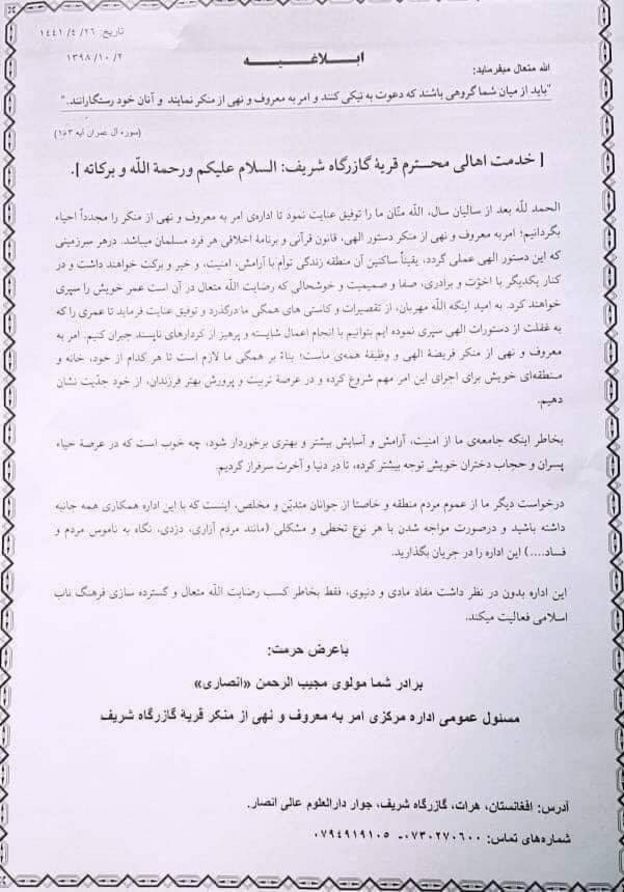 تاریخ: ۲۶/ ۴/ ۱۴۴۱
۲/ ۱۰/ ۱۳۹۸
ابلاغیه
الله متعال میفرماید:
"باید از میان شما گروهی باشند که دعوت به نیکی کنند و امر به معروف و نهی از منکر نمایند و آنان خود رستگارانند."
(سوره آل عمران آیه ۱۰۴)
[ خدمت اهالی محترم قریهٔ گازرگاه شریف: السلام علیکم ورحمة الله و برکاته ].
الحمد لله بعد از سالیان سال، الله منّان ما را توفیق عنایت نمود تا اداره‌ی امر به معروف و نهی از منکر را مجدداً احیاء
بگردانیم؛ امربه معروف و نهی از منکر دستور الهی، قانون قرآنی و برنامهٔ اخلاقی هر فرد مسلمان میباشد. درهر سرزمینی
که این دستور الهی عملی گردد، یقیناً ساکنین آن منطقه زندگی توأم با آرامش، امنیت، و خیر و برکت خواهند داشت و در
کنار یکدیگر با اخوّت و برادری، صفا و صمیمیت و خوشحالی که رضایت الله متعال در آن است عمر خویش را سپری
خواهند کرد. به امید اینکه الله مهربان، از تقصیرات و کاستی های همگی ما درگذرد و توفیق عنایت فرماید تا عمری را که
به غفلت از دستورات الهی سپری نموده ایم بتوانیم با انجام اعمال شایسته و پرهیز از کردارهای ناپسند جبران کنیم. امر به
معروف و نهی از منکر فریضهٔ الهی و وظیفهٔ همه‌ی ماست؛ بناءً بر همگی ما لازم است تا هر کدام از خود، خانه و
منطقه‌ای خویش برای اجرای این امر مهم شروع کرده و در عرصهٔ تربیت و پرورش بهتر فرزندان، از خود جدّیت نشان
دهیم.
بخاطر اینکه جامعه‌ی ما از امنیت، آرامش و آسایش بیشتر و بهتری برخوردار شود، چه خوب است که در عرصهٔ حیاء
پسران و حجاب دختران خویش توجه بیشتر کرده، تا در دنیا و آخرت سرفراز گردیم.
درخواست دیگر ما از عموم مردم منطقه و خاصتا از جوانان متدیّن و مخلص، اینست که با این اداره همکاری همه جانبه
داشته باشید و درصورت مواجه شدن با هر نوع تخطی و مشکلی (مانند مردم آزاری، دزدی، نگاه به ناموس مردم و
فساد....) این اداره را در جریان بگذارید.
این اداره بدون در نظر داشت مفاد مادی و دنیوی، فقط بخاطر کسب رضایت الله متعال و گسترده سازی فرهنگ ناب
اسلامی فعالیت میکند.
باعرض حرمت:
برادر شما مولوی مجیب الرحمن «انصاری»
مسئول عمومی اداره مرکزی امر به معروف و نهی از منکر قریهٔ گازرگاه شریف
آدرس: افغانستان، هرات، گازرگاه شریف، جوار دارالعلوم عالی انصار.
شماره‌های تماس: ۰۷۳۰۲۷۰۶۰۰- ۰۷۹۴۹۱۹۱۰۵